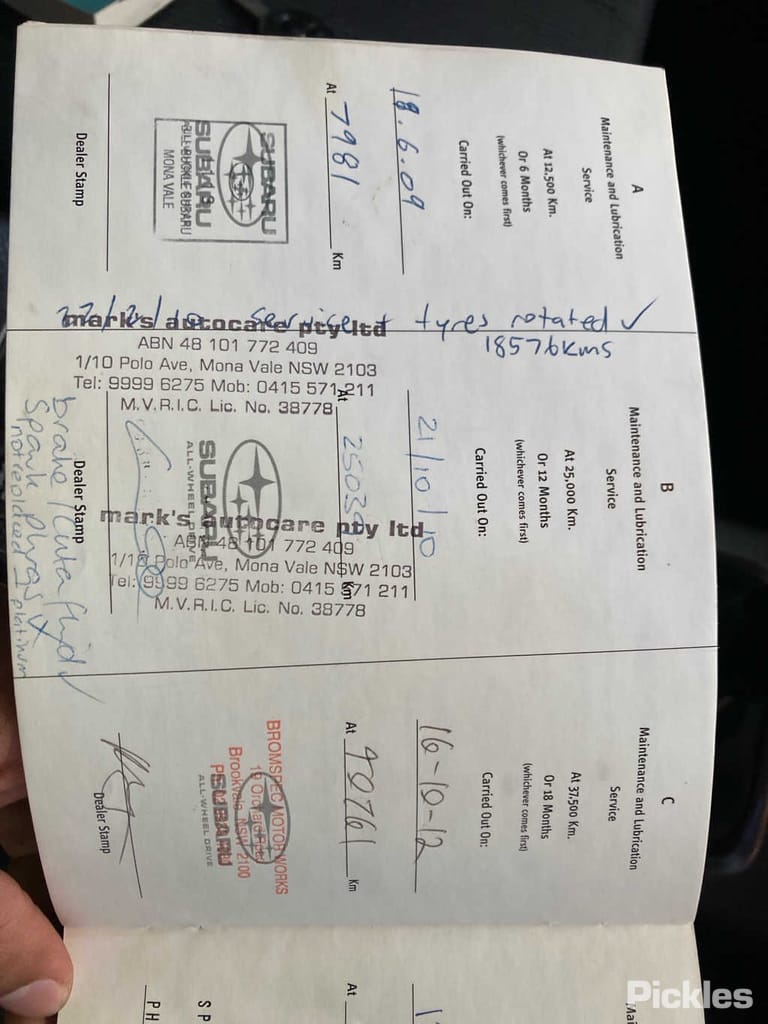 A
Maintenance and Lubrication
Service
At 12,500 Km.
Or 6 Months
(whichever comes first)
Carried Out On:
18.6.09
At 7981 Km
SUBARU
SUBARU
BILL BUCKLE SUBARU
MONA VALE
Dealer Stamp
service + tyres rotated ✓
18576kms
mark's autocare pty ltd
ABN 48 101 772 409
1/10 Polo Ave, Mona Vale NSW 2103
Tel: 9999 6275 Mob: 0415 571 211
M.V.R.I.C. Lic. No. 38778
B
Maintenance and Lubrication
Service
At 25,000 Km.
Or 12 Months
(whichever comes first)
Carried Out On:
21/10/10
At Km
SUBARU
ALL-WHEEL DRIVE
mark's autocare pty ltd
ABN 48 101 772 409
1/10 Polo Ave, Mona Vale NSW 2103
Tel: 9999 6275 Mob: 0415 571 211
M.V.R.I.C. Lic. No. 38778
Dealer Stamp
brake / fluid ✓
spark plugs X
not replaced - platinum
C
Maintenance and Lubrication
Service
At 37,500 Km.
Or 18 Months
(whichever comes first)
Carried Out On:
16-10-12
At 90761 Km
BROMSPEC MOTOR WORKS
Brookvale NSW 2100
SUBARU
ALL-WHEEL DRIVE
Dealer Stamp
At
Pickles